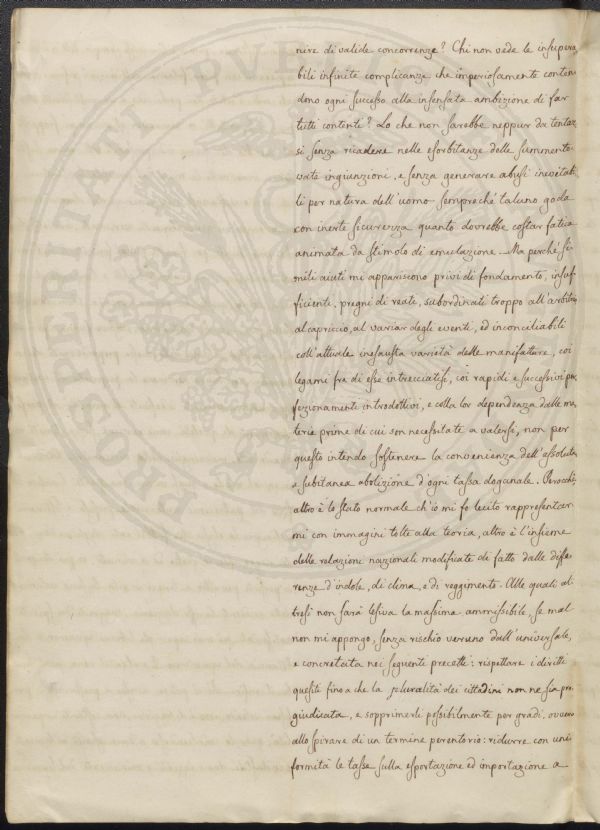 nire di valide concorrenze? Chi non vede le insupera
bili infinite complicanze che imperiosamente conten
dono ogni successo alla insensata ambizione di far
tutti contenti? Lo che non sarebbe neppur da tentar
si senza ricadere nelle esorbitanze delle summento
vate ingiunzioni, e senza generare abusi inevitabi
li per natura dell'uomo sempreché taluno goda
con inerte sicurezza quanto dovrebbe costar fatica
animata da stimolo di emulazione. Ma perché si
mili aiuti mi appariscono privi di fondamento, insuf
ficienti, pregni di reati, subordinati troppo all'arbitrio
al capriccio, al variar degli eventi, ed inconciliabili
coll'attuale inesausta varietà delle manifatture, coi
legami fra di esse intrecciatisi, coi rapidi e successivi per
fezionamenti introdottivi, e colla lor dependenza dalle ma
terie prime di cui son necessitate a valersi, non per
questo intendo sostenere la convenienza dell'assoluta
e subitanea abolizione d'ogni tassa doganale. Perocchè
altro è lo stato normale ch'io mi fo lecito rappresentar
mi con immagini tolte alla teoria, altro è l'insieme
delle relazioni nazionali modificate di fatto dalle diffe
renze d'indole, di clima, e di reggimento. Alle quali al
tresì non farà lesiva la massima ammissibile, se mal
non mi appongo, senza rischio veruno dall'universale,
e concretata nei seguenti precetti: rispettare i diritti
quesiti fino a che la pluralità dei cittadini non ne sia pre
giudicata, e sopprimerli possibilmente per gradi, ovvero
allo spirare di un termine perentorio: ridurre con uni
formità le tasse sulla esportazione ed importazione a
PROSPERITATI PUBLICAE